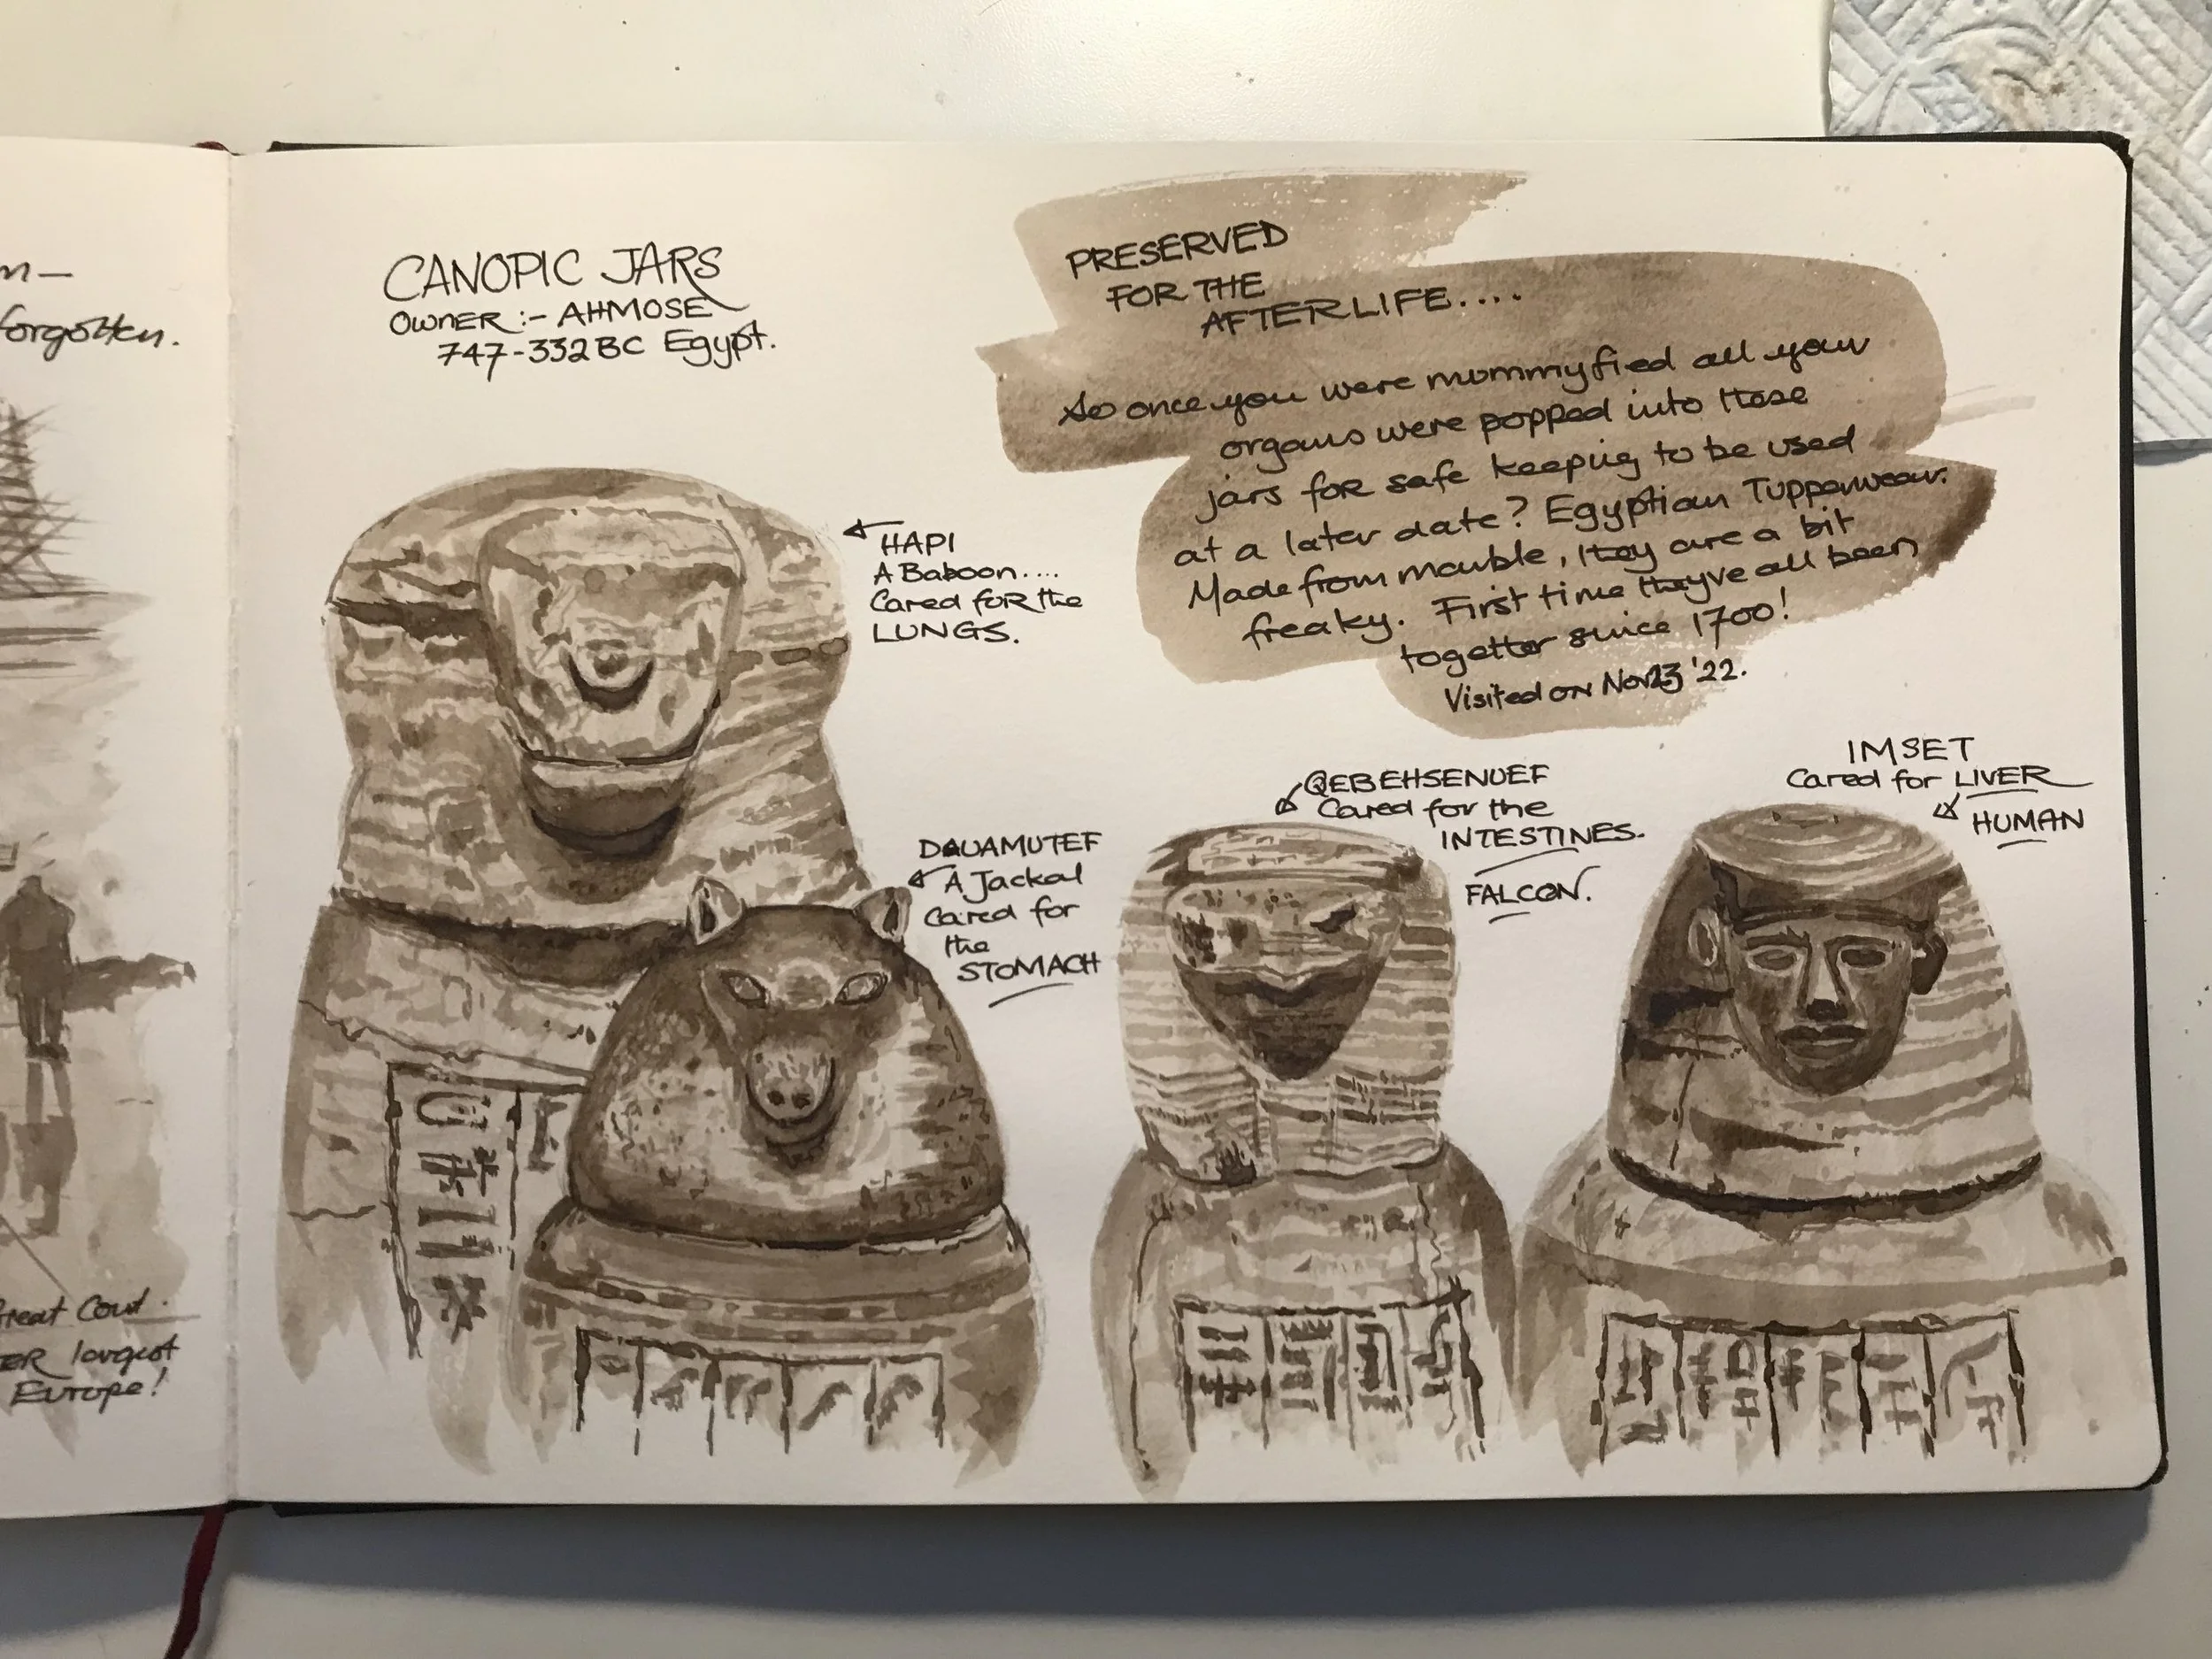 m—
forgotten.
Great Court.
ER largest
Europe!
CANOPIC JARS
OWNER :- AHMOSE
747-332 BC Egypt.
PRESERVED
FOR THE
AFTERLIFE....
So once you were mommyfied all your
organs were popped into these
jars for safe keeping to be used
at a later date? Egyptian Tupperwear.
Made from marble, they are a bit
freaky. First time theyve all been
together since 1700!
Visited on Nov 23 '22.
HAPI
A Baboon....
Cared FOR the
LUNGS.
DAUAMUTEF
A Jackal
Cared for
the
STOMACH
QEBEHSENUEF
Cared for the
INTESTINES.
FALCON.
IMSET
Cared for LIVER
HUMAN